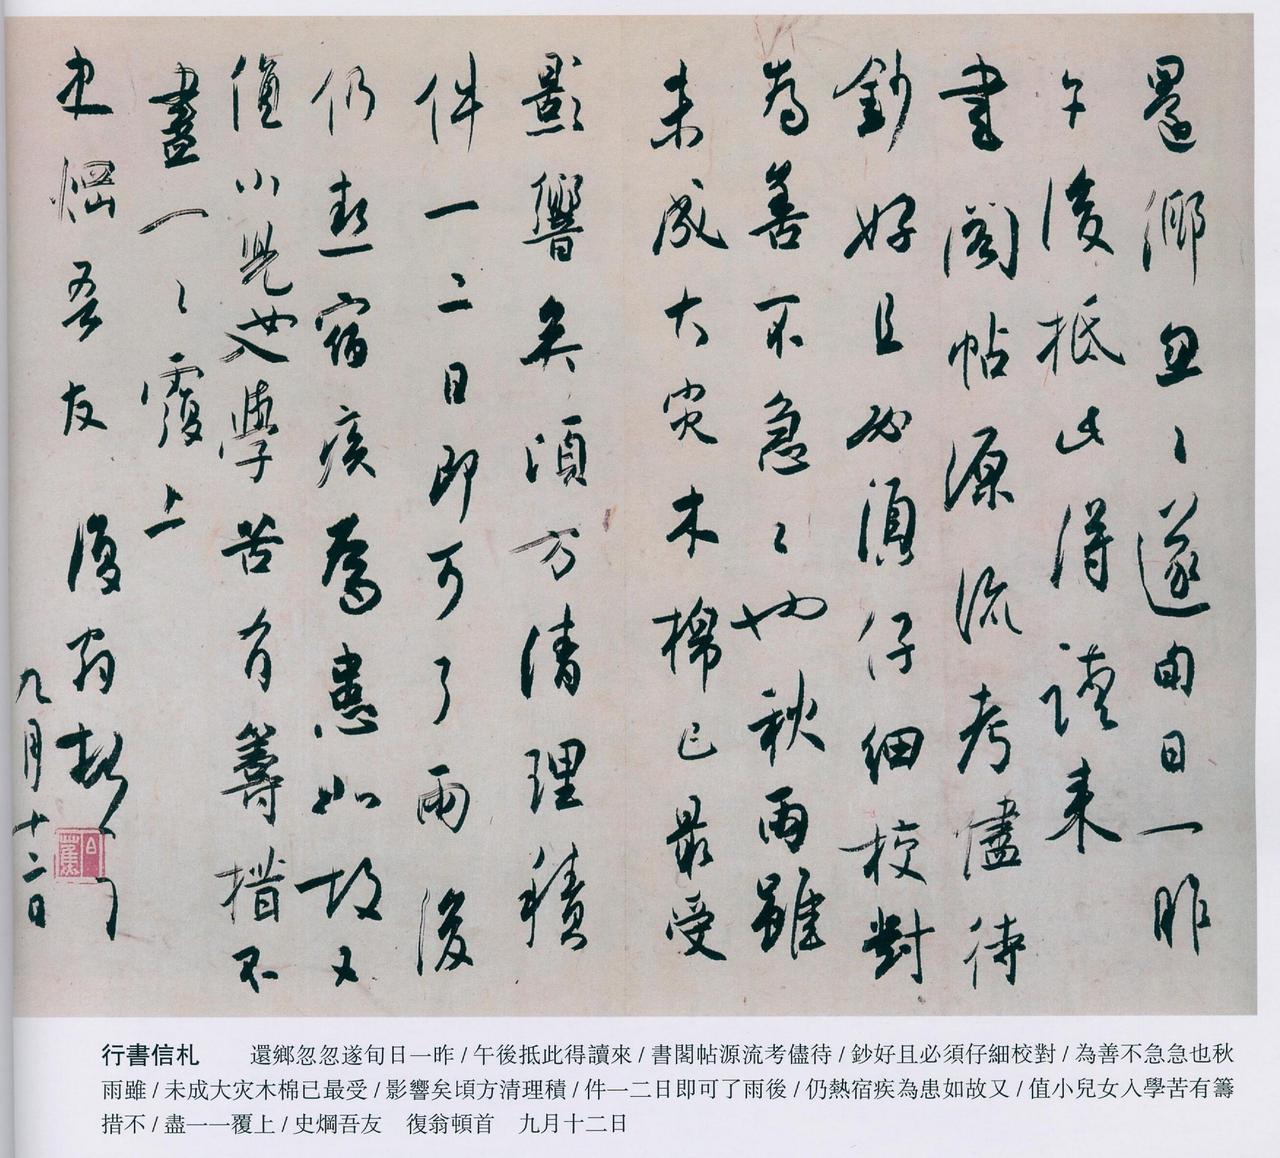 還鄉忽忽遂旬日一昨
午後抵此得讀來
書閣帖源流考儘待
鈔好且必須仔細校對
為善不急急也秋雨雖
未成大灾木棉已最受
影響矣頃方清理積
件一二日即可了雨後
仍熱宿疾為患如故又
值小兒女入學苦有籌措不
盡一一覆上
史焵吾友 復翁頓首
九月十二日
行書信札 還鄉忽忽遂旬日一昨 / 午後抵此得讀來 / 書閣帖源流考儘待 / 鈔好且必須仔細校對 / 為善不急急也秋
雨雖 / 未成大灾木棉已最受 / 影響矣頃方清理積 / 件一二日即可了雨後 / 仍熱宿疾為患如故又 / 值小兒女入學苦有籌
措不 / 盡一一覆上 / 史焵吾友 復翁頓首 九月十二日